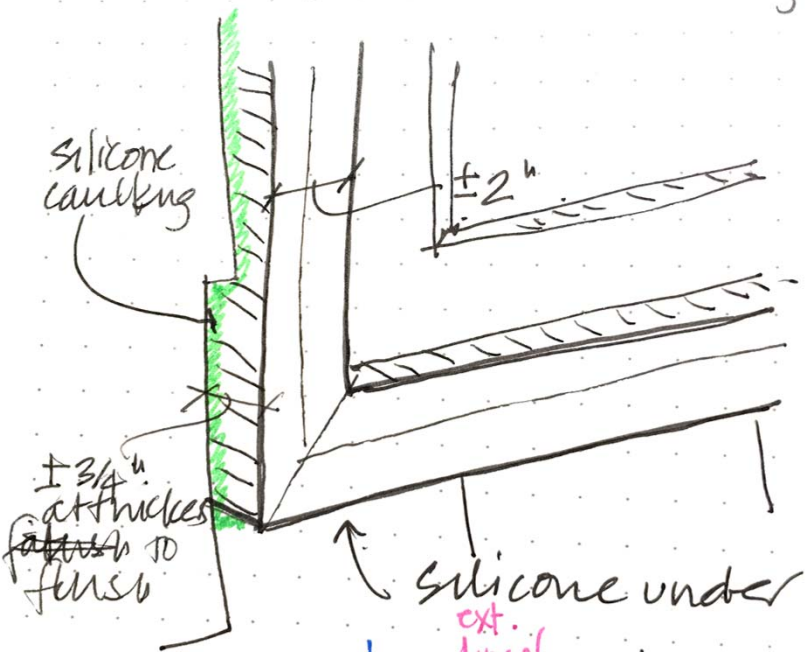 silicone
caulking
±2"
±3/4"
at thickes
to
finish
silicone under
ext.